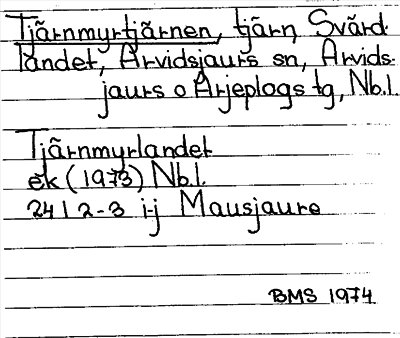 Tjärnmyrtjärnen, tjärn, Svärd-
landet, Arvidsjaurs sn, Arvids-
jaurs o Arjeplogs tg, Nb.l.
Tjärnmyrlandet
ek (1973) Nb.l.
24 I 2-3 i-j Mausjaure
BMS 1974